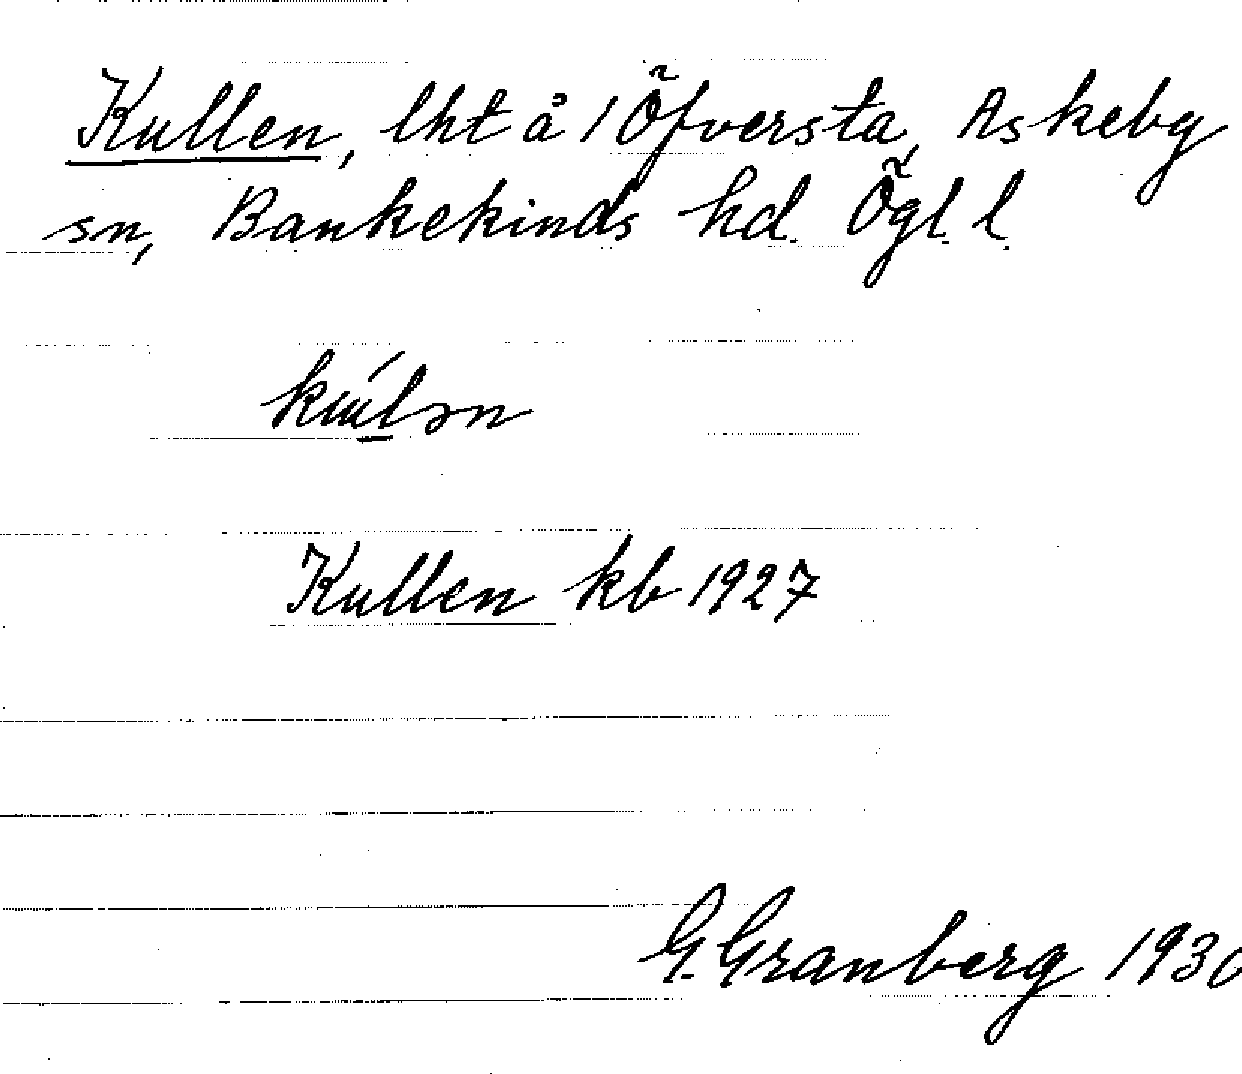 Kullen, lht å 1 Öfversta, Askeby
sn, Bankekinds hd. Ögl. l.
Kullen kb 1927
G. Granberg 1930